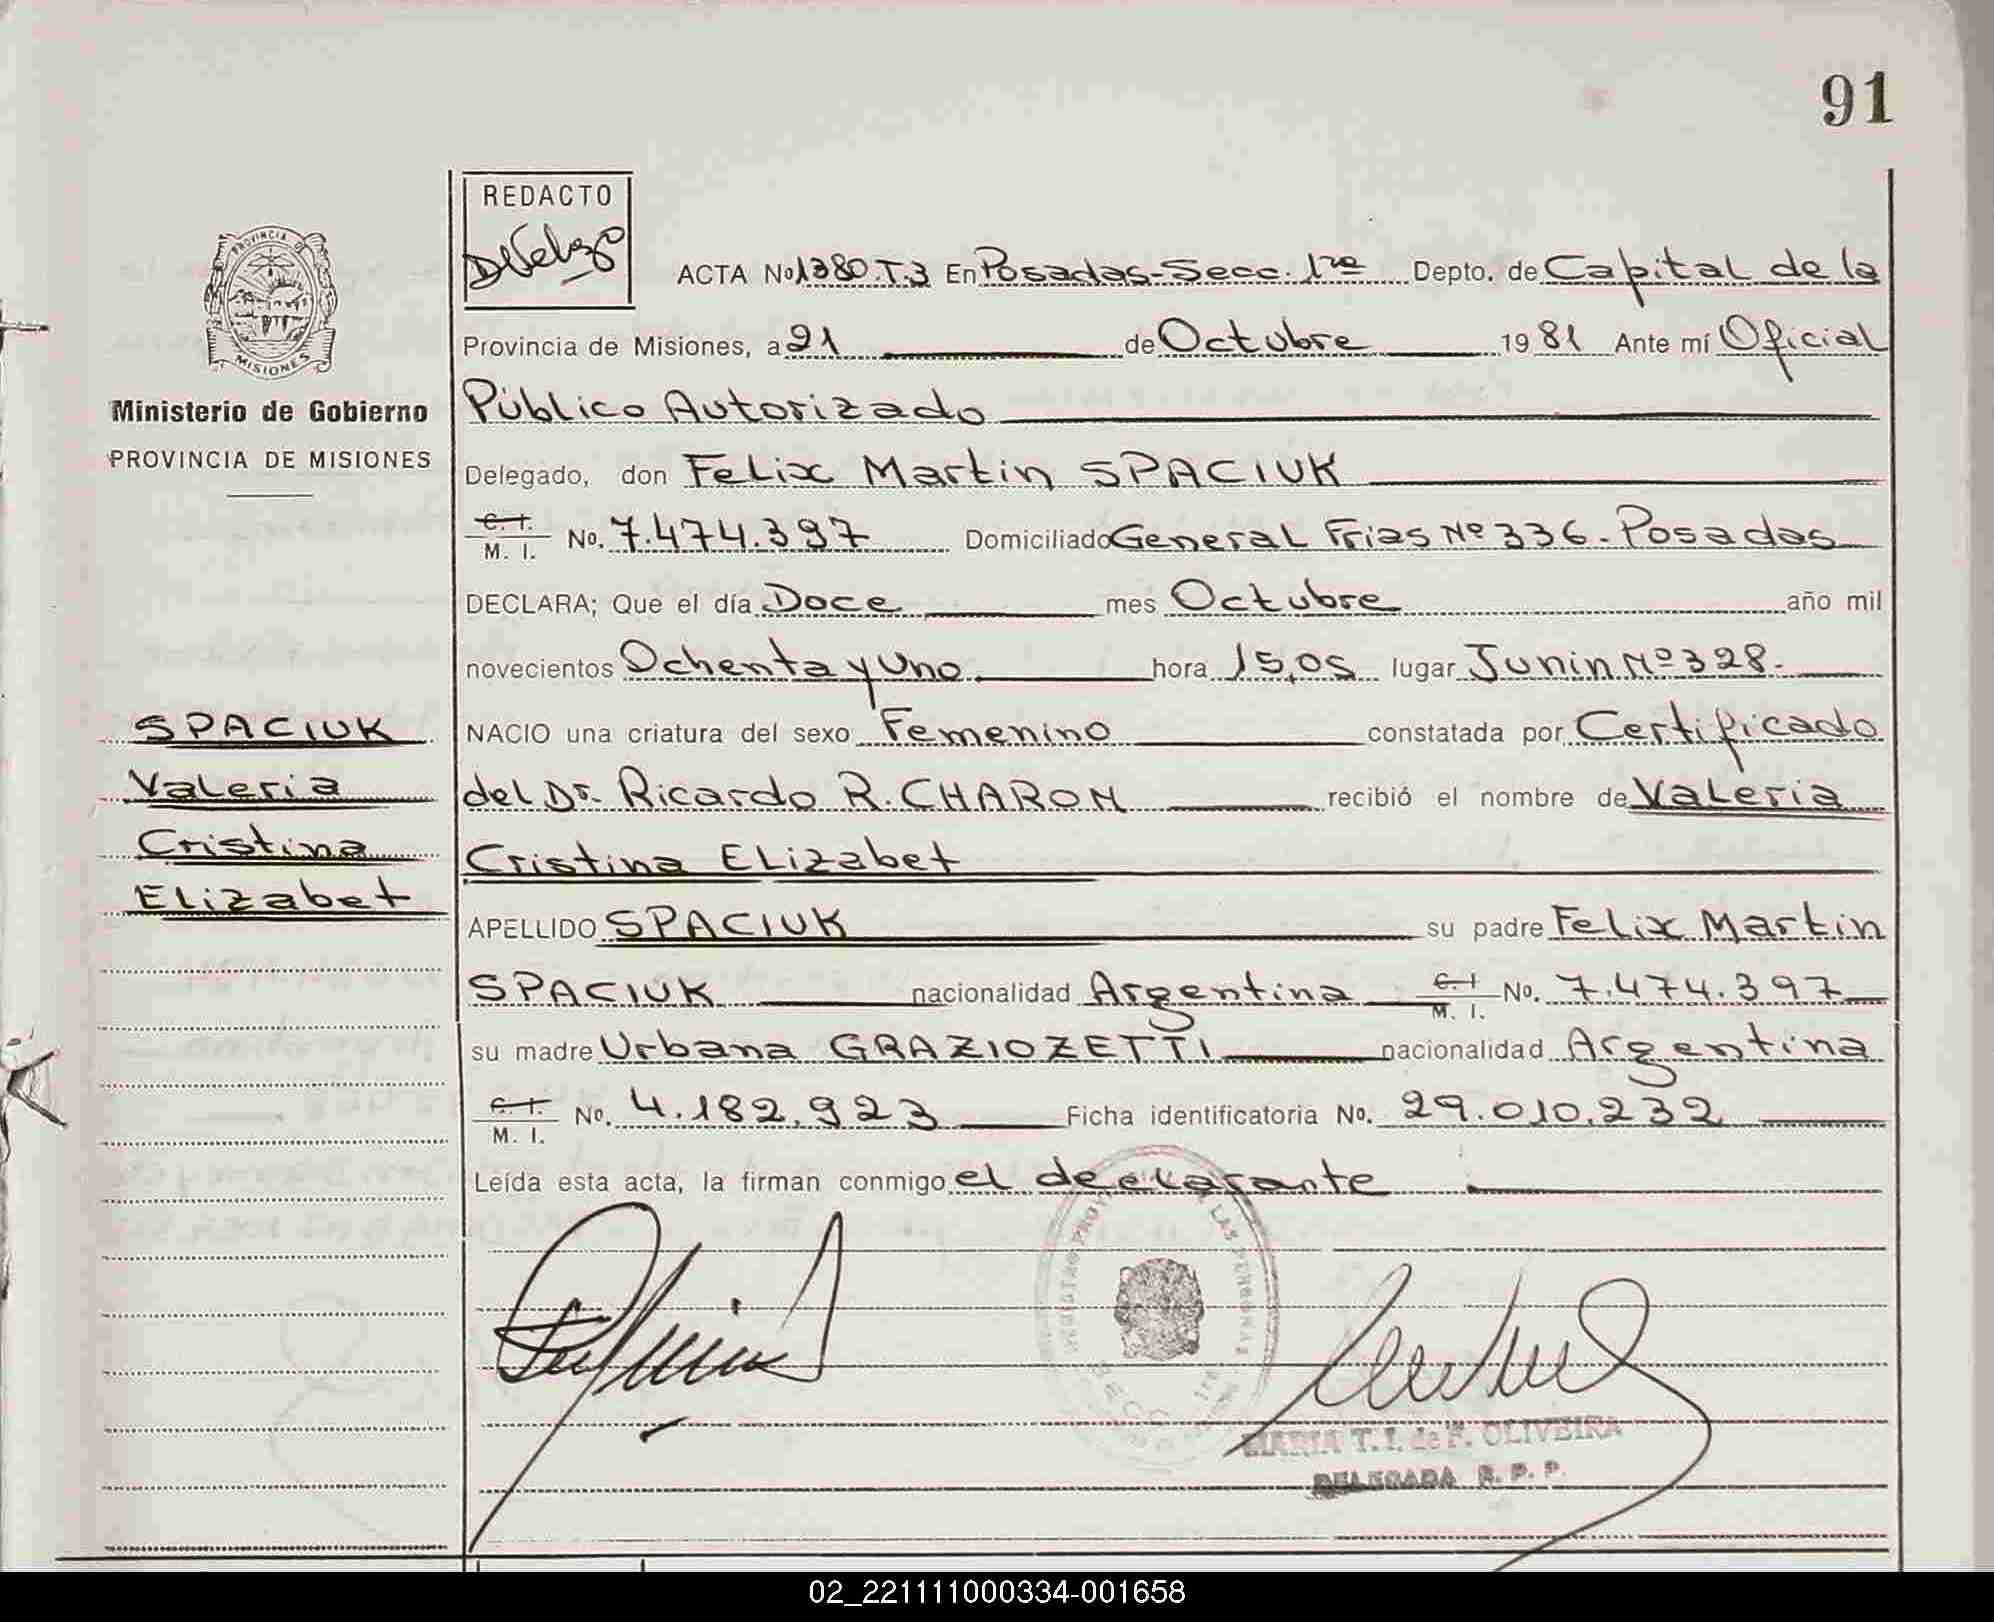 91
REDACTO
ACTA No 1380.T.3 En Posadas-Secc. 1ra Depto. de Capital de la
PROVINCIA DE
MISIONES
Provincia de Misiones, a 21 de Octubre 1981 Ante mí Oficial
Ministerio de Gobierno
PROVINCIA DE MISIONES
Público Autorizado
Delegado, don Felix Martin SPACIUK
C. I.
M. I. No. 7.474.397 Domiciliado General Frias Nº 336 - Posadas
DECLARA; Que el día Doce mes Octubre año mil
novecientos Ochenta y Uno hora 15,05 lugar Junin Nº 328.
SPACIUK
Valeria
Cristina
Elizabet
NACIO una criatura del sexo Femenino constatada por Certificado
del Dr. Ricardo R. CHARON recibió el nombre de Valeria
Cristina Elizabet
APELLIDO SPACIUK su padre Felix Martin
SPACIUK nacionalidad Argentina C. I. M. I. No. 7.474.397
su madre Urbana GRAZIOZETTI nacionalidad Argentina
C. I.
M. I. No. 4.182.923 Ficha identificatoria No. 29.010.232
Leída esta acta, la firman conmigo el declarante
LAS PERSONAS
SECC
MARIA T. I. de F. OLIVEIRA
DELEGADA R. P. P.
02_221111000334-001658